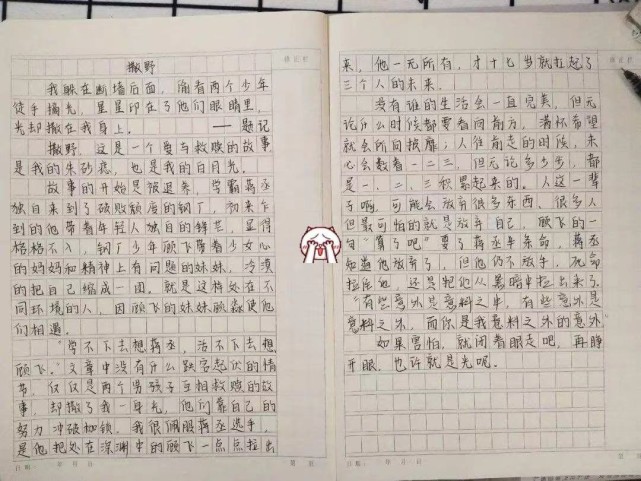 撒野
我躲在断墙后面,隔着两个少年
徒手摘光,星星印在了他们眼睛里,
光却撒在我身上。 ——题记
撒野,这是一个爱与救赎的故事,
是我的朱砂痣,也是我的白月光。
故事的开始是被退养,学霸蒋丞
独自来到了破败颓废的钢厂,初来乍
到的他带着年轻人独自的锋芒,显得
格格不入,钢厂少年顾飞带着少女心
的妈妈和精神上有问题的妹妹,冷漠
的把自己缩成一团,就是这样处在不
同环境的人,因顾飞的妹妹顾淼使他
们相遇。
"学不下去想蒋丞,活不下去想
顾飞。"文章中没有什么跌宕起伏的情
节,仅仅是两个男孩子互相救赎的故
事,却撒了我一身光,他们靠自己的
努力冲破枷锁。我很佩服蒋丞选手,
是他把处在深渊中的顾飞一点点拉出
日期: 年 月 日
来,他一无所有,才十七岁就扛起了
三个人的未来。
没有谁的生活会一直完美,但无
论什么时候都要看向前方,满怀希望
就会所向披靡;人往前走的时候,未
必会数着一二三,但无论多少步,都
是一、二、三积累起来的。人这一辈
子啊,可能会放弃很多东西,很多人
但最可怕的就是放弃自己,顾飞的一
句"算了吧"要了蒋丞半条命,蒋丞
知道他放弃了,但他仍不放手,死命
拉住他,还是把他从黑暗中拉出来了,
"有些意外是意料之中,有些意外是
意料之外,而你是我意料之外的意外"
如果害怕,就闭着眼走吧,再睁
开眼,也许就是光呢。